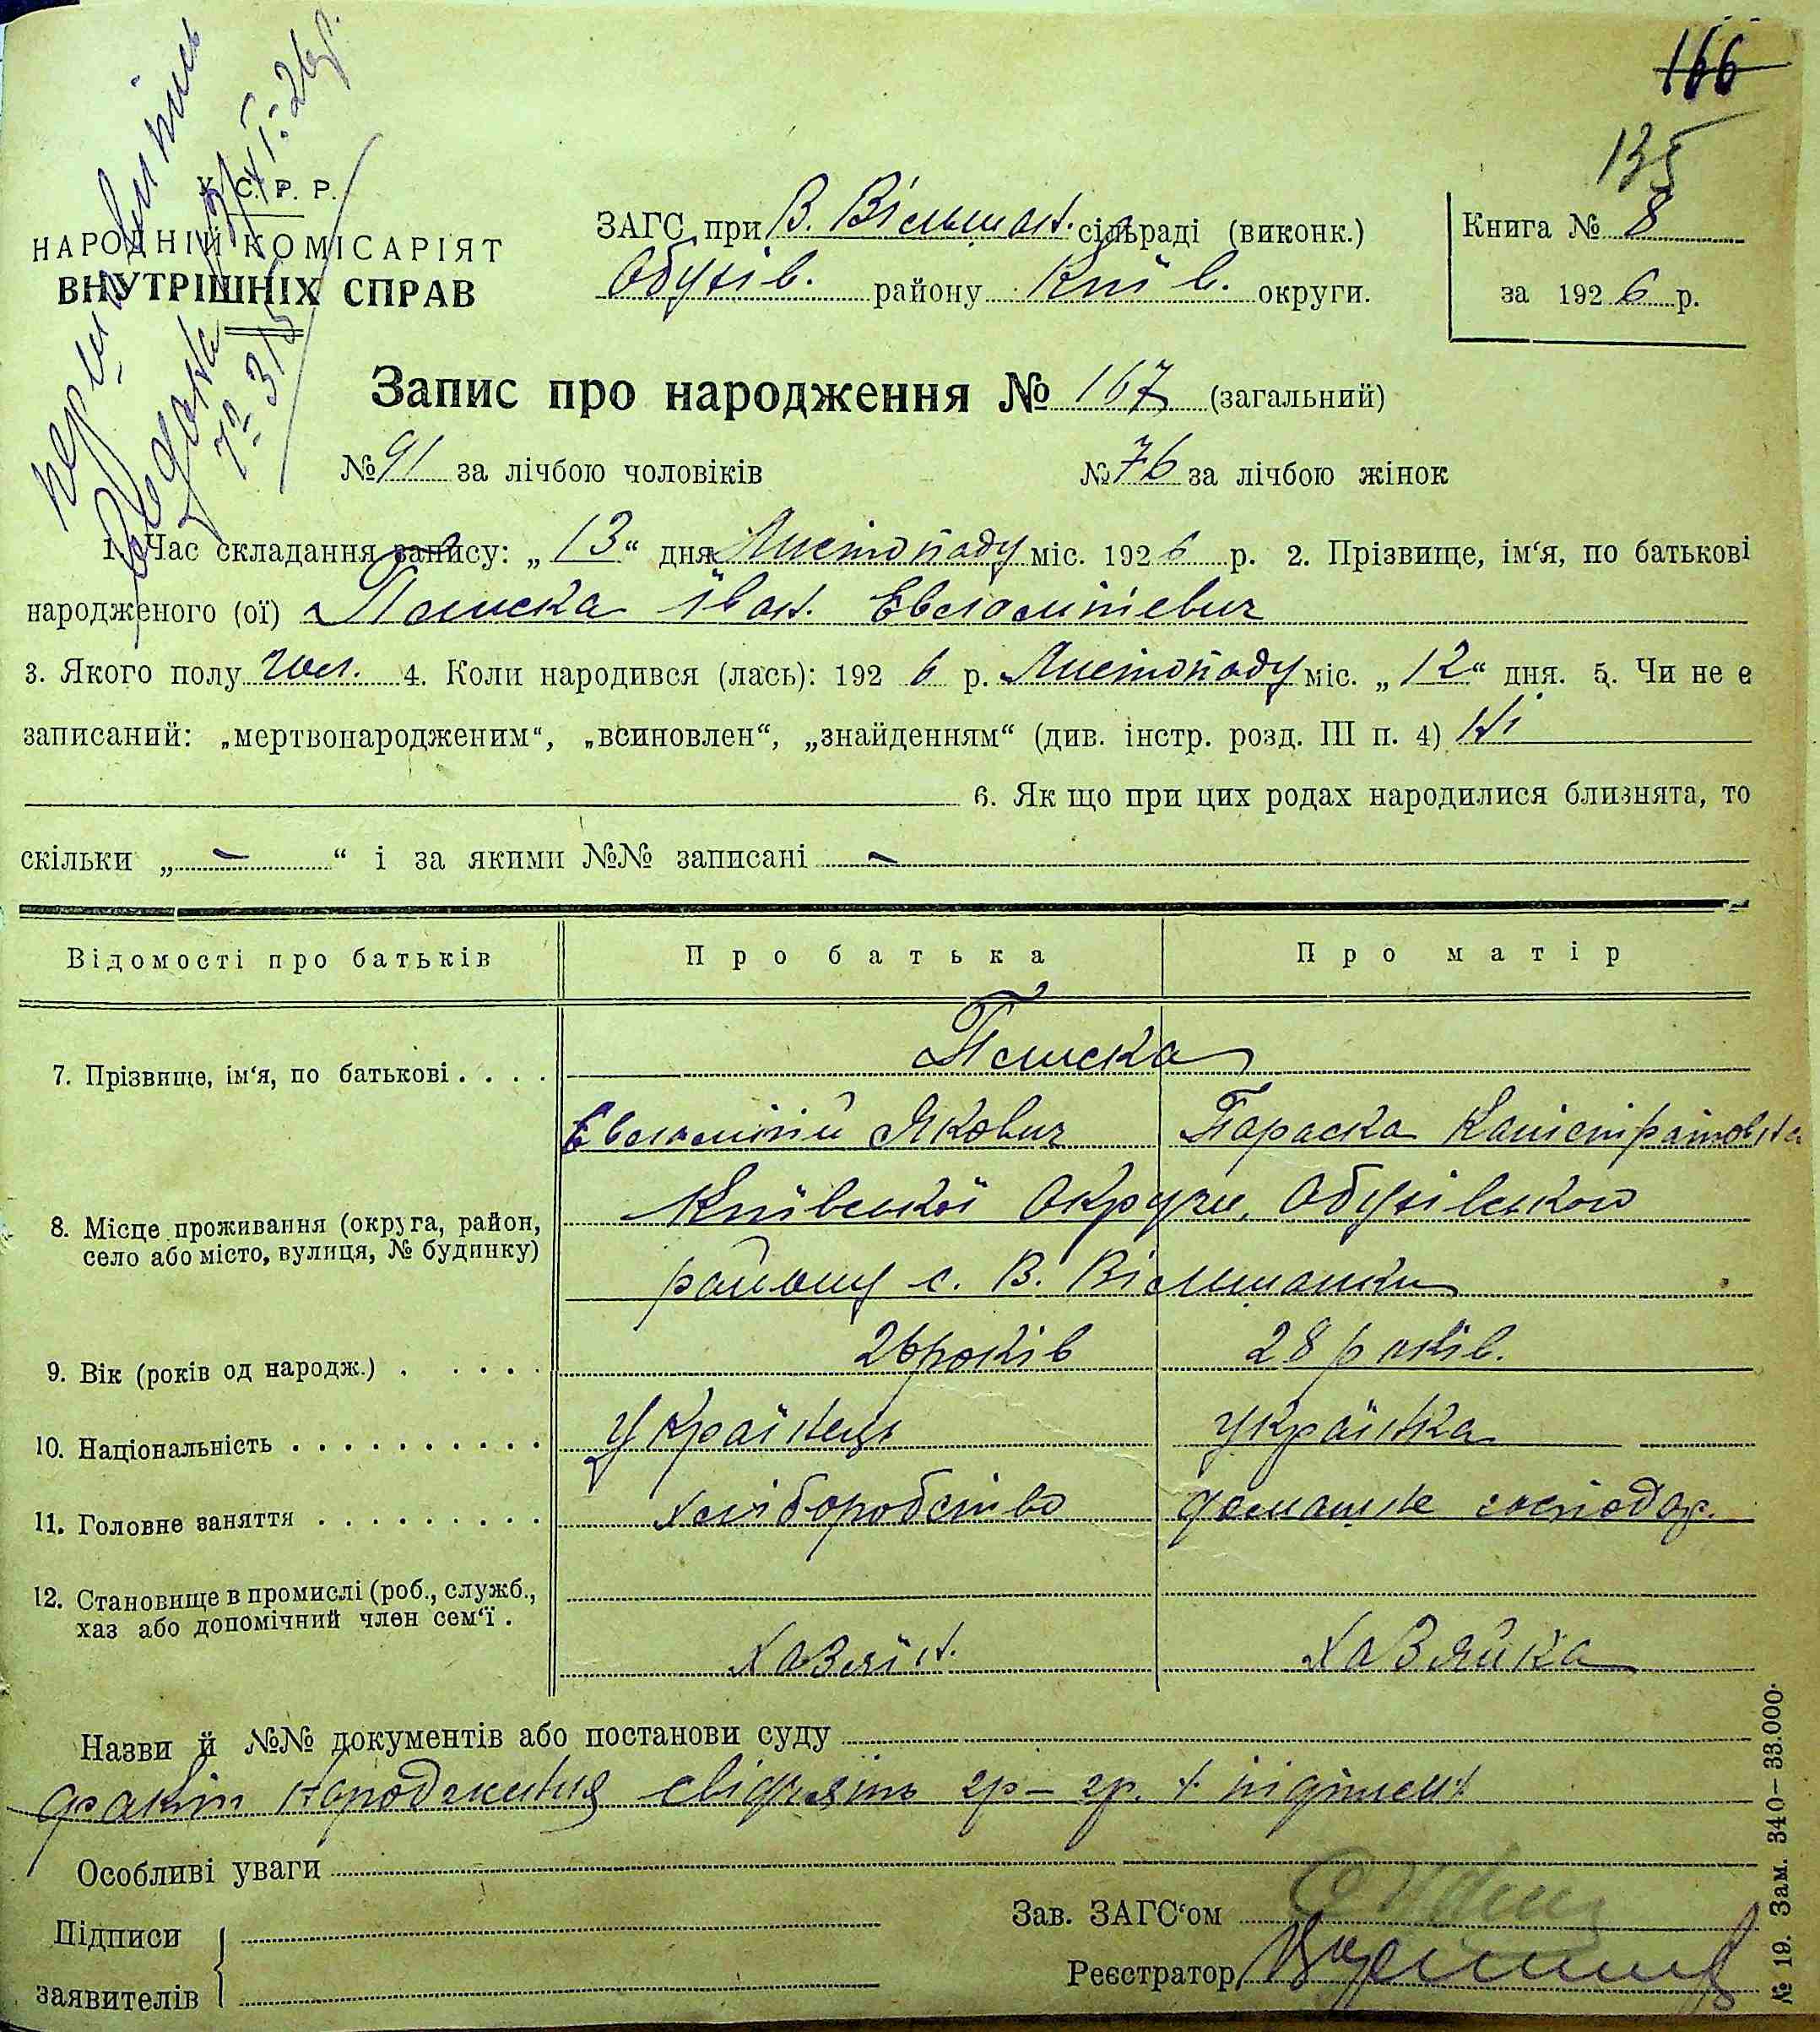 166
135
У. С. Р. Р.
НАРОДНІЙ КОМІСАРІЯТ
ВНУТРІШНІХ СПРАВ
ЗАГС при В. Вільшан. сільраді (виконк.)
Обухів. району Київ. округи.
Книга № 8
за 1926 р.
Запис про народження № 167 (загальний)
№ 91 за лічбою чоловіків
№ 76 за лічбою жінок
1. Час складання запису: „ 13 “ дня Листопаду міс. 1926 р. 2. Прізвище, ім‘я, по батькові
народженого (ої) Іван. Евслампіевич
3. Якого полу чол. 4. Коли народився (лась): 1926 р. Листопаду міс. „ 12 “ дня. 5. Чи не є
записаний: „мертвонародженим“, „всиновлен“, „знайденням“ (див. інстр. розд. III п. 4) Ні
6. Як що при цих родах народилися близнята, то
скільки „ – “ і за якими №№ записані –
Відомості про батьків
Про батька
Про матір
7. Прізвище, ім‘я, по батькові
Евлампій Якович
Параска Калістратовна
8. Місце проживання (округа, район,
село або місто, вулиця, № будинку)
Київської Округи, Обухівського
району с. В. Вільшанки
9. Вік (років од народж.)
26 років
28 років.
10. Національність
Українець
Українка
11. Головне заняття
хліборобство
домашне господар.
12. Становище в промислі (роб., служб.,
хаз або допомічний член сем‘ї .
Хазяїн.
Хазяйка
Назви й №№ документів або постанови суду
факт народження свідчять гр–гр.
Особливі уваги
Підписи
заявителів
Зав. ЗАГС‘ом
Реєстратор
№ 19. Зам. 340–33.000.